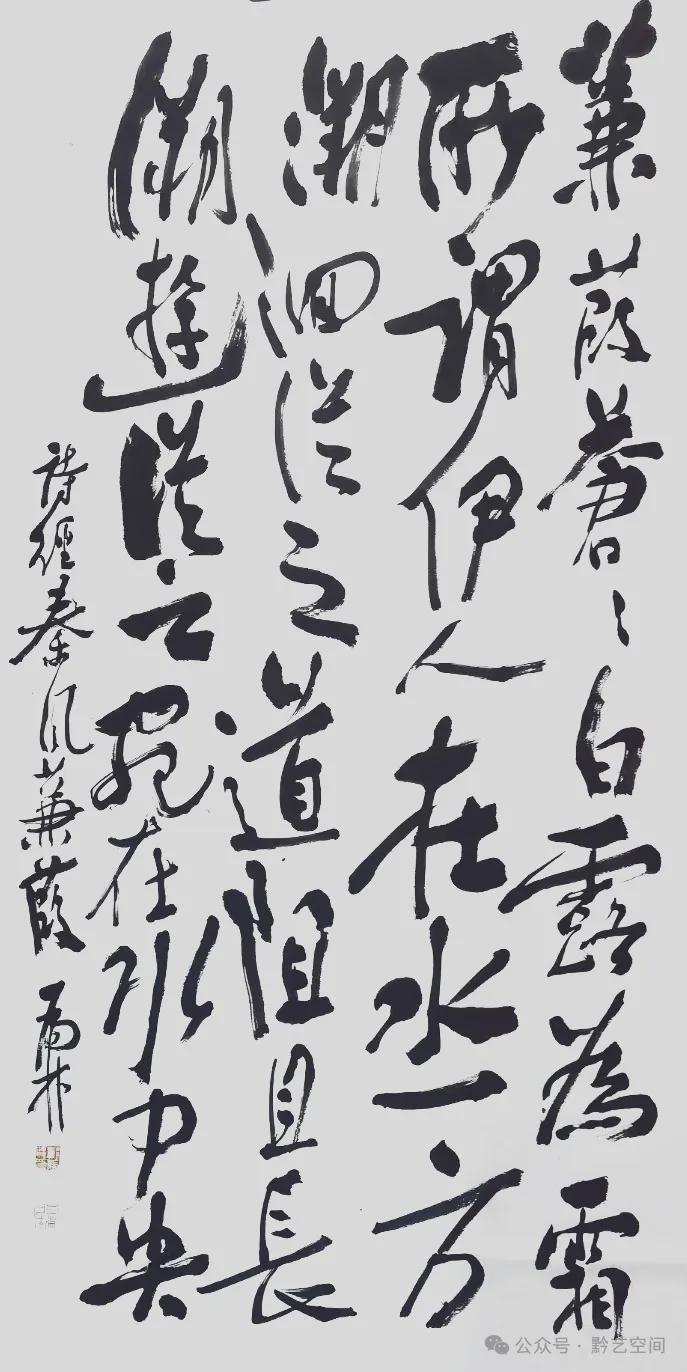 蒹葭蒼々白露為霜
所謂伊人在水一方
溯洄從之道阻且長
溯遊從之宛在水中央
詩經秦風蒹葭
公众号·黔艺空间